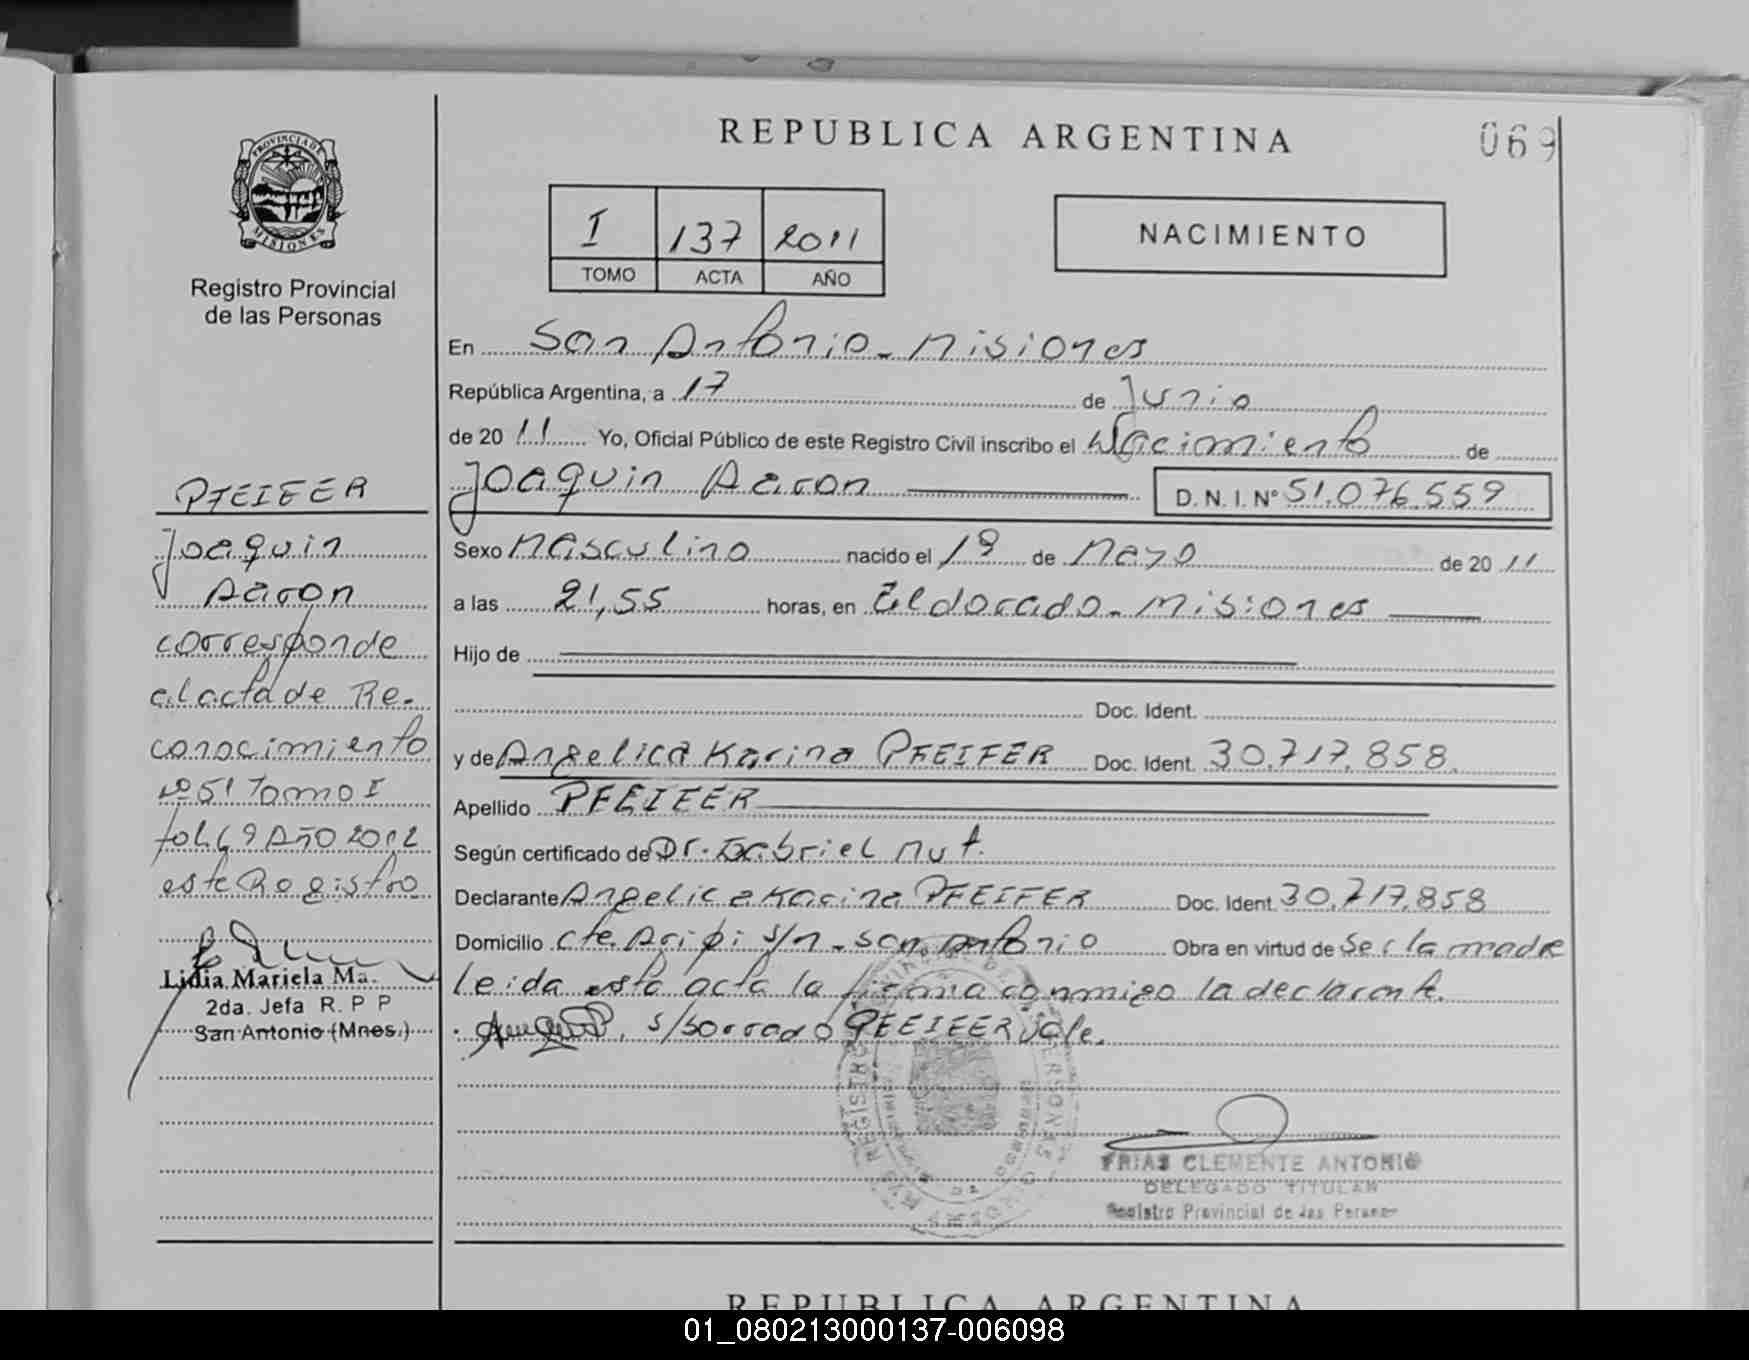 REPUBLICA ARGENTINA
069
PROVINCIA DE MISIONES
Registro Provincial
de las Personas
I 137 2011
TOMO ACTA AÑO
NACIMIENTO
En San Antonio - Misiones
República Argentina, a 17 de Junio
de 20 11 Yo, Oficial Público de este Registro Civil inscribo el Nacimiento de
Joaquin Aaron D.N.I. N° 51.076.559
Sexo Masculino nacido el 19 de Mayo de 20 11
a las 21,55 horas, en Eldorado - Misiones
Hijo de
Doc. Ident.
y de Angelica Karina PFEIFER Doc. Ident. 30.717.858.
Apellido PFEIFER
Según certificado de Dr. Gabriel Mut.
Declarante Angelica Karina PFEIFER Doc. Ident. 30.717.858
Domicilio Cte. Aripi s/n - San Antonio Obra en virtud de Ser la madre
leida esta acta la firma conmigo la declarante.
s/borrado PFEIFER vale.
PFEIFER
Joaquin
Aaron
corresponde
al acta de Re-
conocimiento
Nº 51 Tomo I
fol. 69 Año 2012
este Registro
Lidia Mariela Ma.
2da. Jefa R. P P
San Antonio (Mnes.)
FRIAS CLEMENTE ANTONIO
DELEGADO TITULAR
Registro Provincial de las Personas
REPUBLICA ARGENTINA
01_080213000137-006098